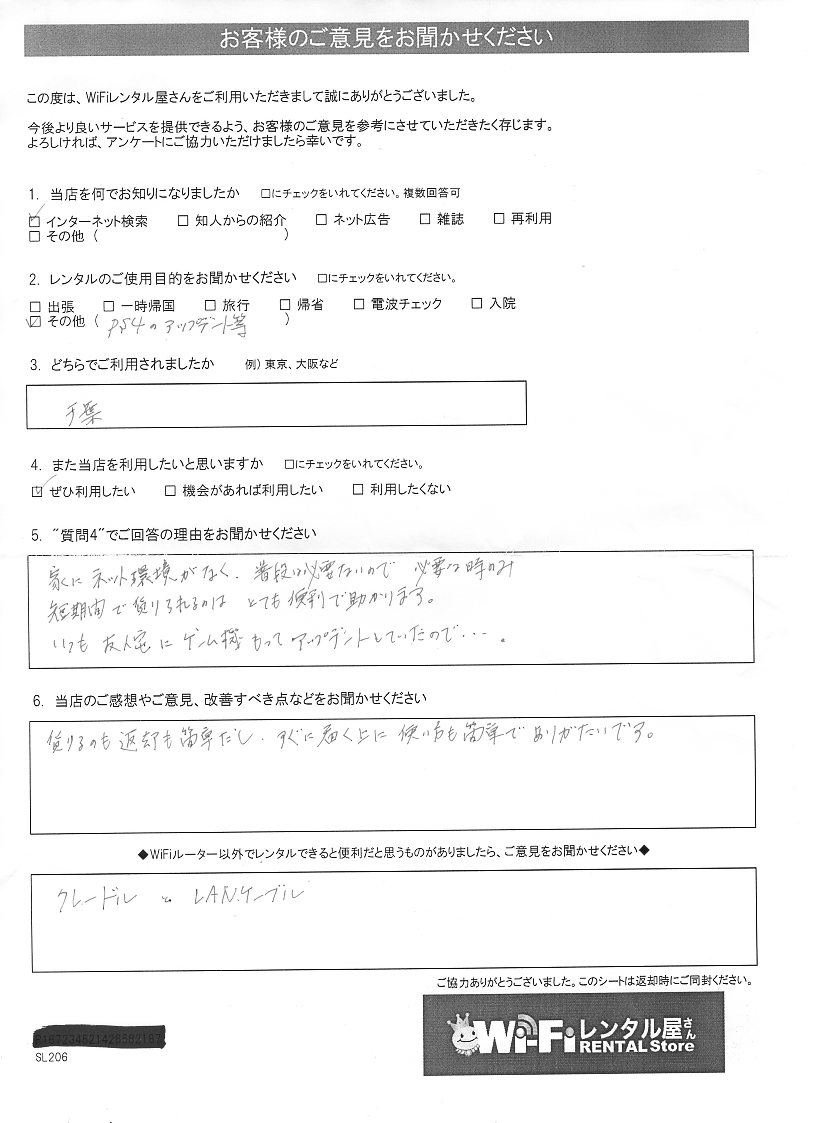 お客様のご意見をお聞かせください
この度は、WiFiレンタル屋さんをご利用いただきまして誠にありがとうございました。
今後より良いサービスを提供できるよう、お客様のご意見を参考にさせていただきたく存じます。
よろしければ、アンケートにご協力いただけましたら幸いです。
1. 当店を何でお知りになりましたか □にチェックをいれてください。複数回答可
☑ インターネット検索 □ 知人からの紹介 □ ネット広告 □ 雑誌 □ 再利用
□ その他 ( )
2. レンタルのご使用目的をお聞かせください □にチェックをいれてください。
□ 出張 □ 一時帰国 □ 旅行 □ 帰省 □ 電波チェック □ 入院
☑ その他 ( PS4のアップデート等 )
3. どちらでご利用されましたか 例) 東京、大阪など
千葉
4. また当店を利用したいと思いますか □にチェックをいれてください。
☑ ぜひ利用したい □ 機会があれば利用したい □ 利用したくない
5. “質問4”でご回答の理由をお聞かせください
家にネット環境がなく、普段は必要ないので 必要な時のみ
短期間で借りられるのは とても便利で助かります。
いつも 友人宅に ゲーム機もって アップデートしていたので・・・。
6. 当店のご感想やご意見、改善すべき点などをお聞かせください
借りるのも返却も簡単だし、すぐに届く上に 使い方も簡単でありがたいです。
◆WiFiルーター以外でレンタルできると便利だと思うものがありましたら、ご意見をお聞かせください◆
クレードル と LANケーブル
ご協力ありがとうございました。このシートは返却時にご同封ください。
Wi-Fiレンタル屋さん
RENTAL Store
SL206